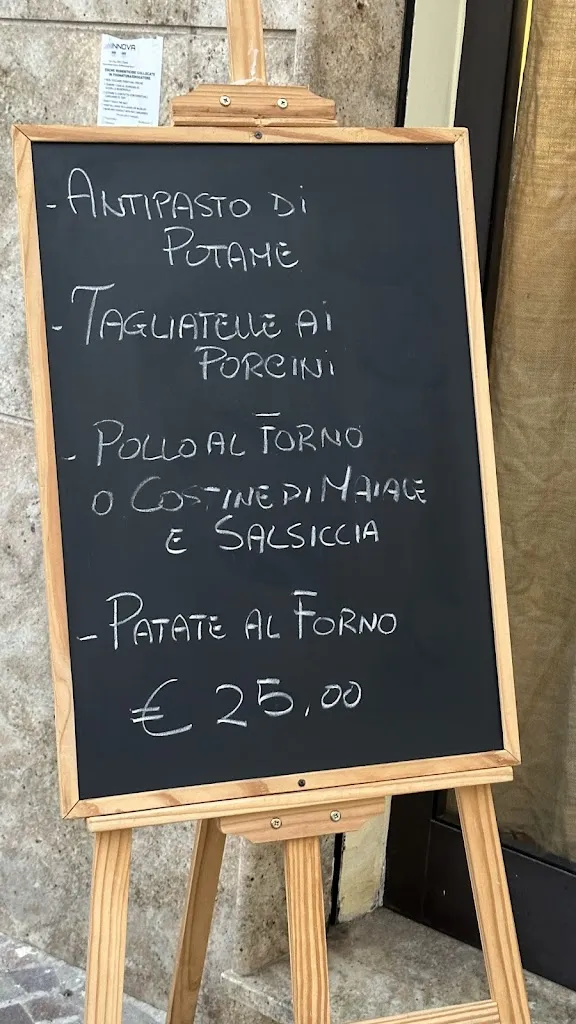 INNOVA
- ANTIPASTO Di
POTAME
- TAGLIATELLE Ai
PORCINi
- POLLO AL FORNO
O COSTINE Di MAIALE
E SALSICCIA
- PATATE AL FORNO
€ 25,00